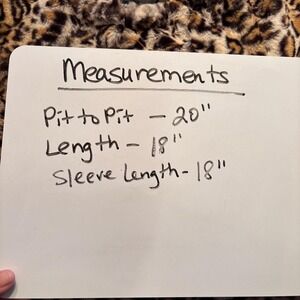 Measurements
Pit to Pit - 20"
Length - 18"
Sleeve Length - 18"